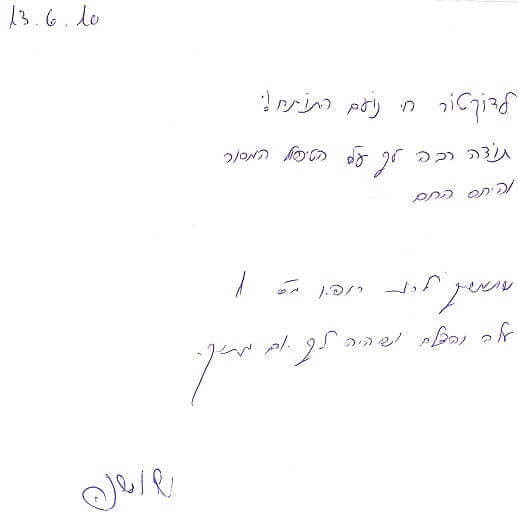 13.6.10
לדוקטור חי נועם התותח!
תודה רבה לך על הטיפול המסור
והיחס החם
שתמשיך להיות רופא מס 1
עלה והצלח ושיהיה לך יום מתוק.
שושנה